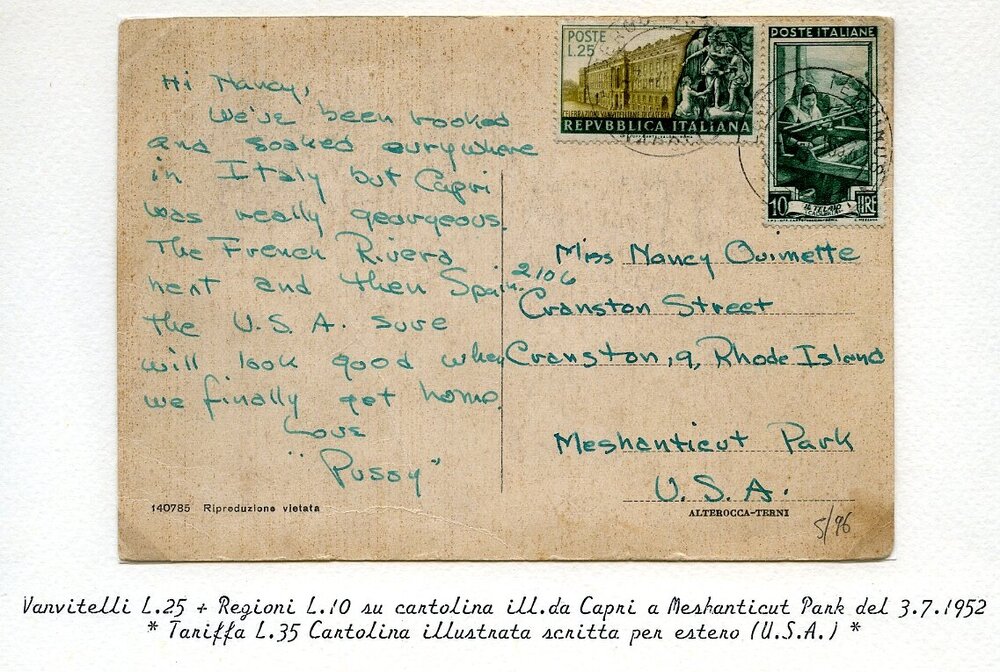 POSTE
L.25
CELEBRAZIONI VANVITELLIANE DI CASERTA
REPVBBLICA ITALIANA
POSTE ITALIANE
10
IL TELAIO
LIRE
Hi Nancy,
We've been rooked
and soaked eurywhere
in Italy but Capri
was really georgeous.
The French Rivera
next and then Spain.
the U.S.A. sure
will look good when
we finally get home.
Love
"Pussy"
Miss Nancy Ouimette
2106
Cranston Street
Cranston, 9, Rhode Island
Meshanticut Park
U.S.A.
140785 Riproduzione vietata
ALTEROCCA-TERNI
5/96
Vanvitelli L.25 + Regioni L.10 su cartolina ill.da Capri a Meshanticut Park del 3.7.1952
* Tariffa L.35 Cartolina illustrata scritta per estero (U.S.A.) *